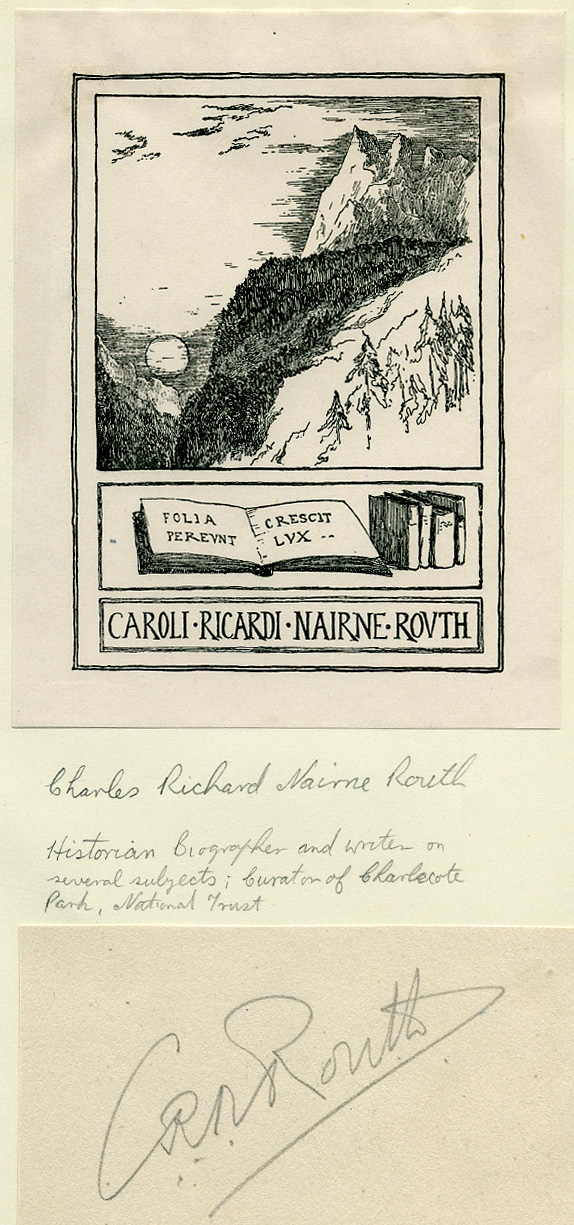 FOLIA
PEREVNT
CRESCIT
LVX --
CAROLI·RICARDI·NAIRNE·ROVTH
Charles Richard Nairne Routh
Historian Biographer and writer on
several subjects; Curator of Charlecote
Park, National Trust
C R N Routh